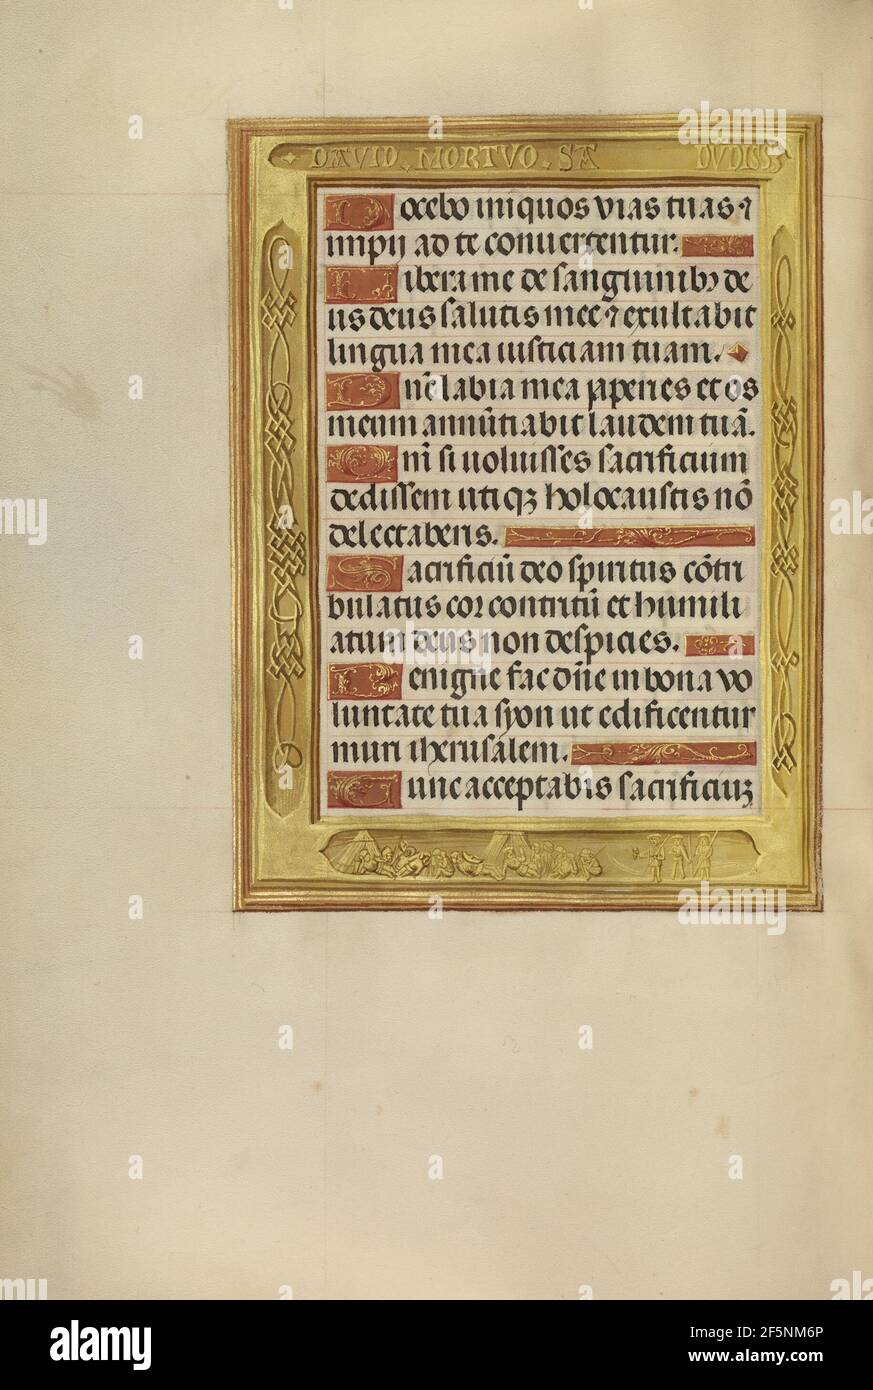 DAVID MORTVO SA
Docebo iniquos vias tuas ⁊
impij ad te conuertentur.
Libera me de sanguinibꝰ de
us deus salutis mee ⁊ exultabit
lingua mea iusticiam tuam.
Dñe labia mea aperies et os
meum annũtiabit laudem tuã.
Qm̃ si uoluisses sacrificium
dedissem utiqꝫ holocaustis nõ
delectaberis.
Sacrificiũ deo spiritus cõtri
bulatus cor contritũ et humili
atum deus non despicies.
Benigne fac dñe in bona vo
luntate tua syon ut edificentur
muri iherusalem.
Tunc acceptabis sacrificiuꝫ
alamy
Image ID: 2F5NM6P
www.alamy.com